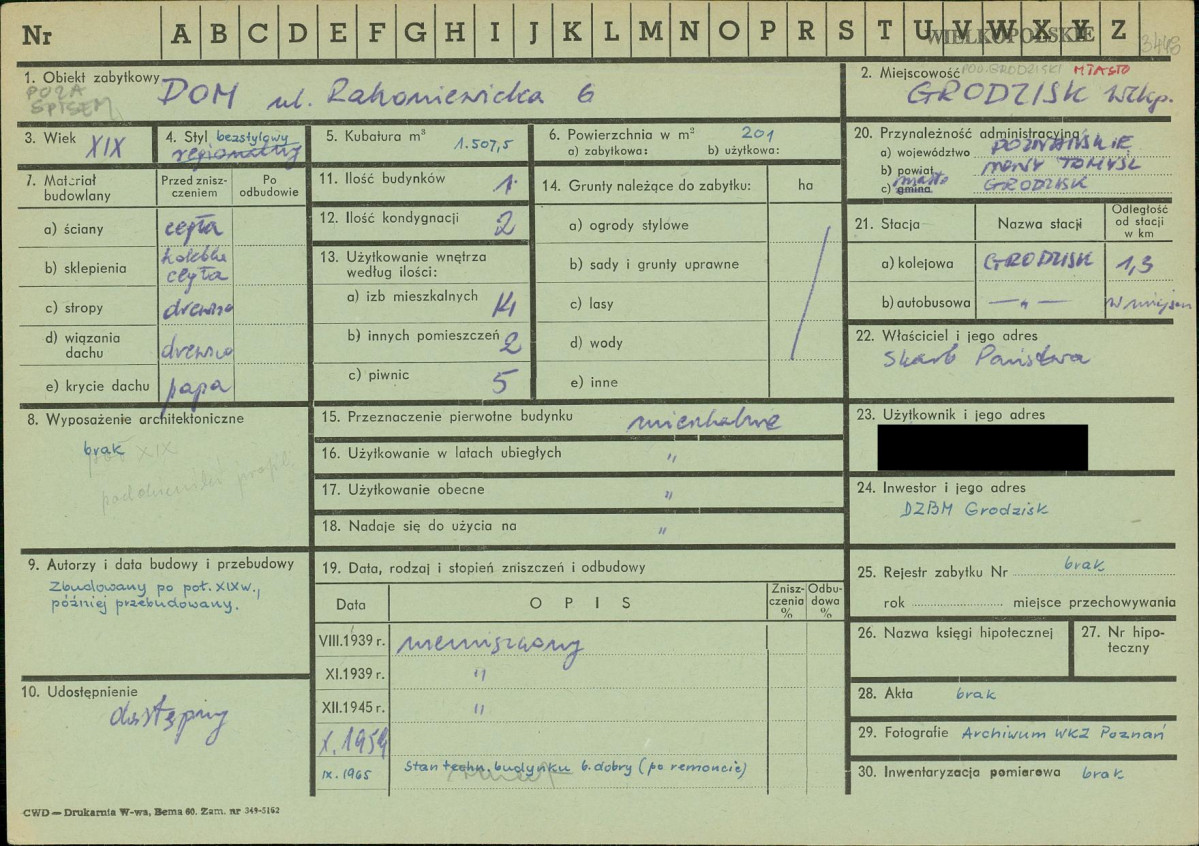 Nr A B C D E F G H I J K L M N O P R S T U V W X Y Z
WIELKOPOLSKIE
3448
1. Obiekt zabytkowy DOM ul. Rakoniewicka 6
POZA
SPISEM
2. Miejscowość POW. GRODZISKI MIASTO
GRODZISK Wlkp.
3. Wiek XIX
4. Styl bezstylowy
regionalny
5. Kubatura m³ 1.507,5
6. Powierzchnia w m² 201
a) zabytkowa: b) użytkowa:
20. Przynależność administracyjna
a) województwo POZNAŃSKIE
b) powiat NOWY TOMYŚL
c) gmina miasto GRODZISK
7. Materiał budowlany
Przed zniszczeniem
Po odbudowie
a) ściany cegła
b) sklepienia kolebkowe cegła
c) stropy drewno
d) wiązania dachu drewno
e) krycie dachu papa
11. Ilość budynków 1
12. Ilość kondygnacji 2
13. Użytkowanie wnętrza według ilości:
a) izb mieszkalnych 14
b) innych pomieszczeń 2
c) piwnic 5
14. Grunty należące do zabytku: ha
a) ogrody stylowe
b) sady i grunty uprawne
c) lasy
d) wody
e) inne
21. Stacja Nazwa stacji Odległość od stacji w km
a) kolejowa GRODZISK 1,3
b) autobusowa — " — w miejscu
22. Właściciel i jego adres
Skarb Państwa
8. Wyposażenie architektoniczne
brak
XIX
15. Przeznaczenie pierwotne budynku mieszkalne
16. Użytkowanie w latach ubiegłych "
17. Użytkowanie obecne "
18. Nadaje się do użycia na "
23. Użytkownik i jego adres
24. Inwestor i jego adres
DZBM Grodzisk
9. Autorzy i data budowy i przebudowy
Zbudowany po poł. XIX w.,
później przebudowany.
19. Data, rodzaj i stopień zniszczeń i odbudowy
Data OPIS Zniszczenia % Odbudowa %
VIII.1939 r. niezniszczony
XI.1939 r. "
XII.1945 r. "
X.1959
IX.1965 Stan techn. budynku b. dobry (po remoncie)
25. Rejestr zabytku Nr brak
rok miejsce przechowywania
26. Nazwa księgi hipotecznej
27. Nr hipoteczny
10. Udostępnienie
dostępny
28. Akta brak
29. Fotografie Archiwum WKZ Poznań
30. Inwentaryzacja pomiarowa brak
CWD — Drukarnia W-wa, Bema 60. Zam. nr 349-5162